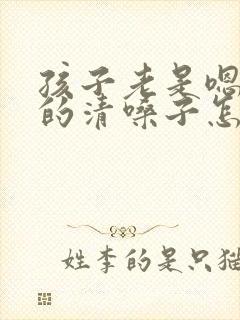 孩子老是嗯
的清嗓子怎
姓李的是只猫